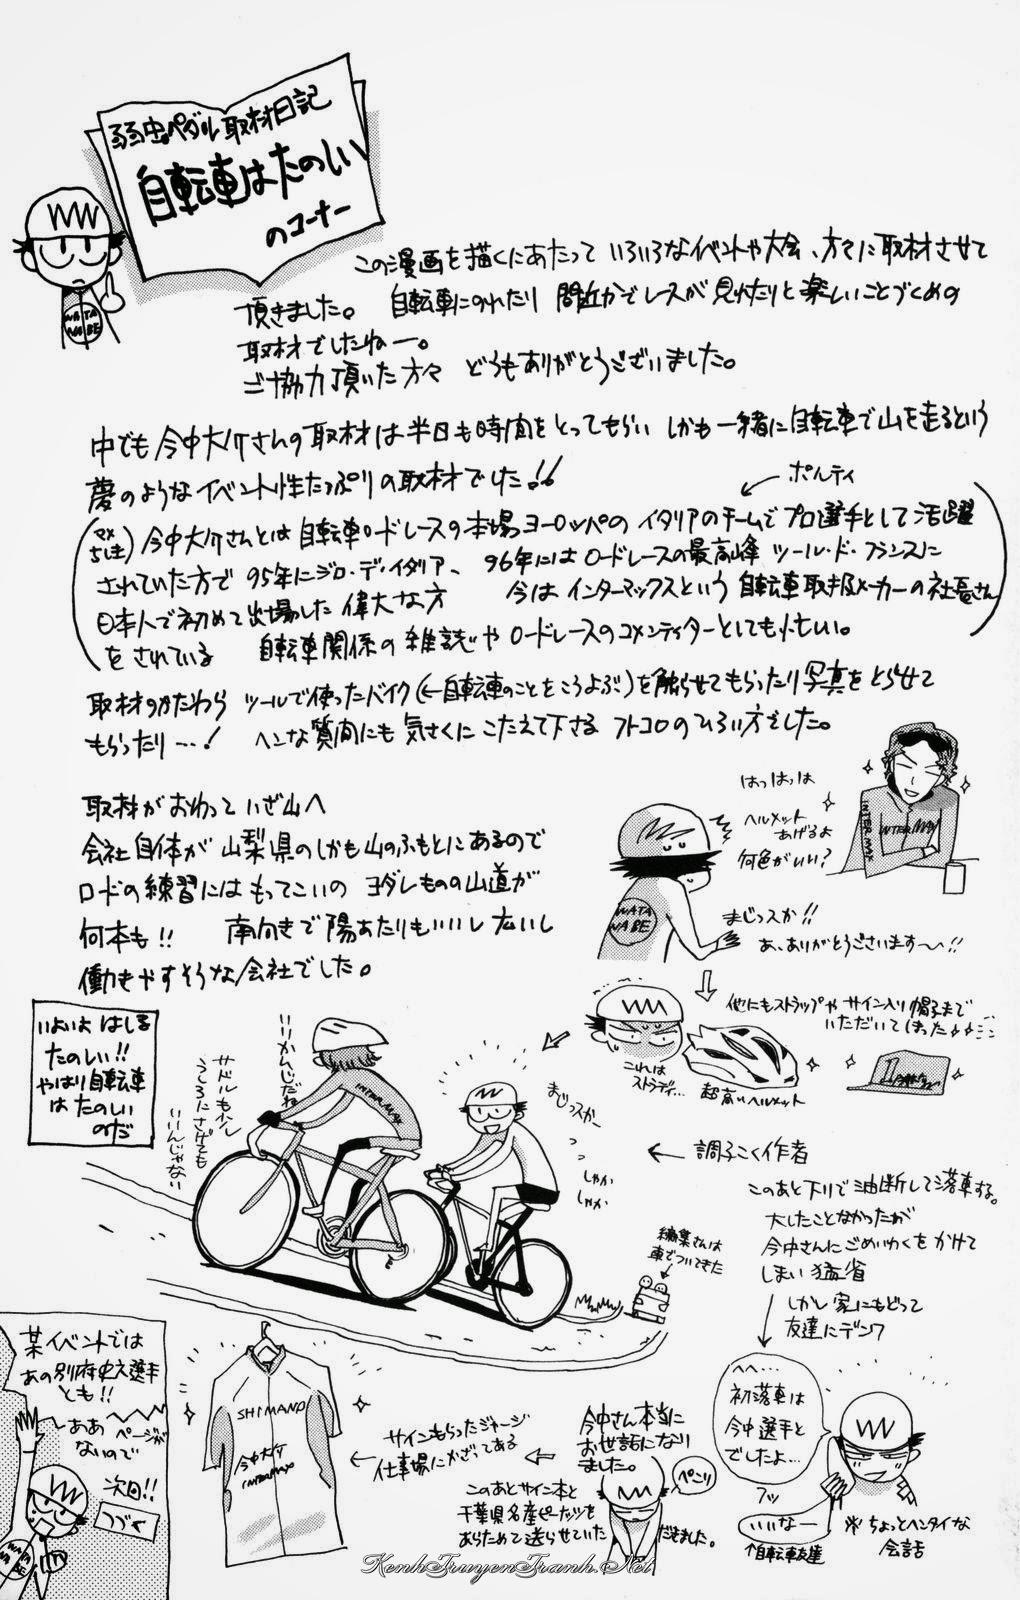 弱虫ペダル取材日記
自転車はたのしい
のコーナー
WATA
NABE
この漫画を描くにあたって いろいろなイベントや大会、方々に取材させて
頂きました。 自転車にのれたり 間近かでレースが見れたりと楽しいことづくめの
取材でしたねー。
ご協力頂いた方々 どうもありがとうございました。
中でも今中大介さんの取材は半日も時間をとってもらい しかも一緒に自転車で山を走るという
夢のようなイベント性たっぷりの取材でした!!
ポルティ
今中大介さんとは自転車ロードレースの本場ヨーロッパのイタリアのチームでプロ選手として活躍
されていた方で 95年にジロ・デ・イタリア、 96年にはロードレースの最高峰 ツール・ド・フランスに
日本人で初めて出場した偉大な方 今はインターマックスという自転車取扱メーカーの社長さん
をされている 自転車関係の雑誌やロードレースのコメンテイターとしても忙しい。
取材のかたわら ツールで使ったバイク(←自転車のことをこうよぶ)を触らせてもらったり写真をとらせて
もらったり…! ヘンな質問にも気さくにこたえて下さる フトコロのひろい方でした。
取材がおわって いざ山へ
会社自体が山梨県のしかも山のふもとにあるので
ロードの練習にはもってこいの ヨダレものの山道が
何本も!! 南向きで陽あたりもいいし 広いし
働きやすそうな会社でした。
はっはっは
ヘルメット
あげるよ
何色がいい?
INTER MAX
INTERMAX
WATA
NABE
まじっスか!!
あ、ありがとうございます〜!!
他にもストラップやサイン入り帽子まで
いただいてしまった
これは
ストラディ…
超高いヘルメット
いよいよ はしる
たのしい!!
やはり自転車
は たのしい
のだ
いいかんじだね
サドルも少し
うしろにさげても
いいんじゃない
INTERMAX
まじっスかー
しゃか
しゃか
← 調子こく作者
このあと下りで油断して落車する。
大したことなかったが
今中さんにごめいわくをかけて
しまい猛省
しかし 家にもどって
友達にデンワ
編集さんは
車でついてきた
へへ…
初落車は
今中選手と
でしたよ…
フッ
いいなー
↑自転車友達
※ちょっとヘンタイな
会話
今中さん本当に
お世話になり
ました。
ぺこり
このあとサイン本と
千葉県名産ピーナッツを
あらためて送らせていた
だきました。
サインもらったジャージ
仕事場にかざってある
SHIMANO
今中大介
INTERMAX
某イベントでは
あの別府史之選手
とも!!
ああ ページが
ないので
次回!!
つづく
WATA
NABE
KenhTruyenTranh.Net